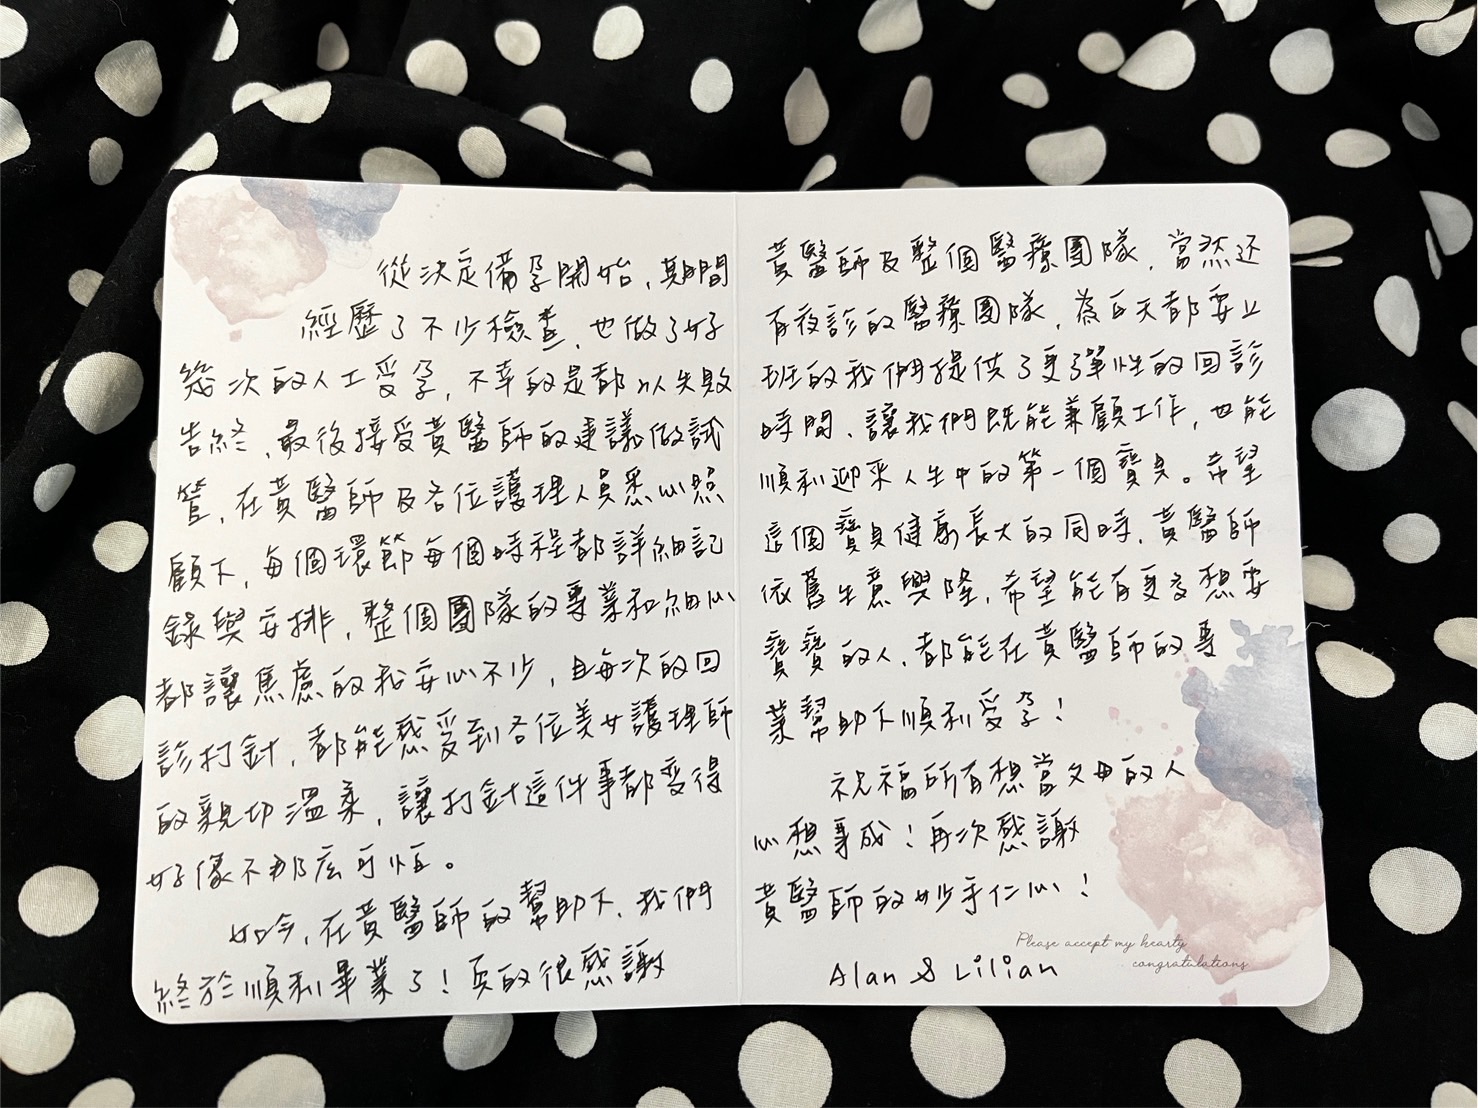 從決定備孕開始，期間
經歷了不少檢查，也做了好
幾次的人工受孕，不幸的是都以失敗
告終，最後接受黃醫師的建議做試
管，在黃醫師及各位護理人員悉心照
顧下，每個環節每個時程都詳細記
錄與安排，整個團隊的專業和細心
都讓焦慮的我安心不少，且每次的回
診打針，都能感受到各位美女護理師
的親切溫柔，讓打針這件事都變得
好像不那広可怕。
如今，在黃醫師的幫助下，我們
終於順利畢業了！真的很感謝
黃醫師及整個醫療團隊，當然还
有夜診的醫療團隊，為白天都要上
班的我們提供了更彈性的回診
時間，讓我們既能兼顧工作，也能
順利迎來人生中的第一個寶貝。希望
這個寶貝健康長大的同時，黃醫師
依舊生意興隆，希望能有更多想要
寶寶的人，都能在黃醫師的專
業幫助下順利受孕！
祝福所有想當父母的人
心想事成！再次感謝
黃醫師的妙手仁心！
Please accept my hearty
congratulations
Alan & Lilian